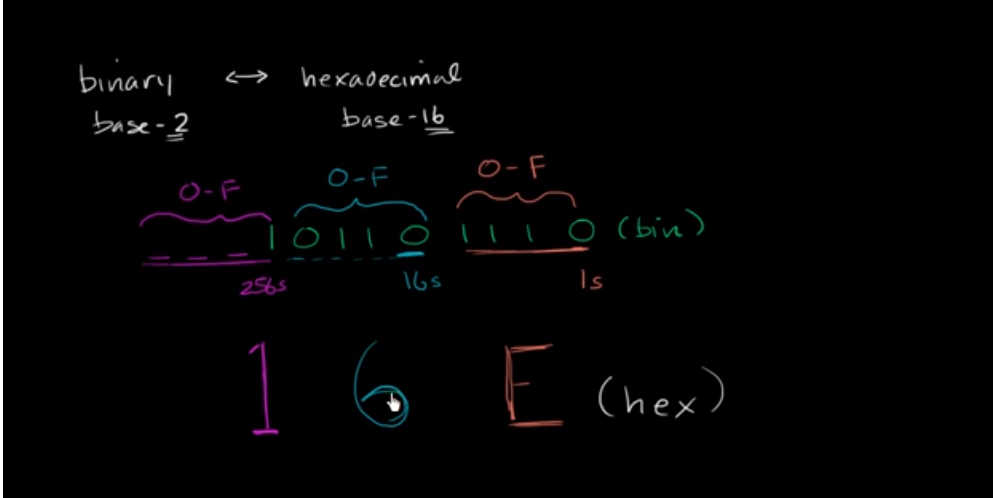 binary ↔ hexadecimal
base-2 base-16
0-F 0-F 0-F
_ _ _ 1 0110 1110 (bin)
256s 16s 1s
1 6 E (hex)